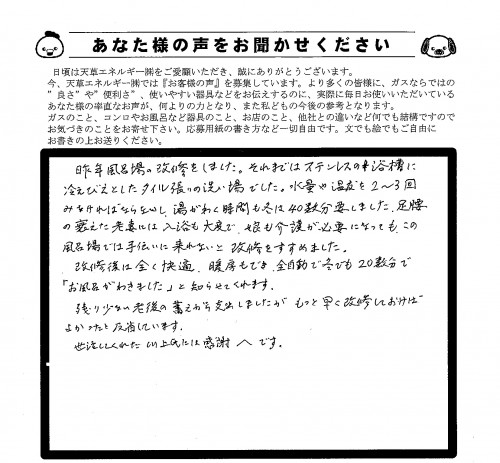 あなた様の声をお聞かせください
日頃は天草エネルギー㈱をご愛顧いただき、誠にありがとうございます。
今、天草エネルギー㈱では『お客様の声』を募集しています。より多くの皆様に、ガスならではの
”良さ”や”便利さ”、使いやすい器具などをお伝えするのに、実際に毎日お使いいただいている
あなた様の率直なお声が、何よりの力となり、また私どもの今後の参考となります。
ガスのこと、コンロやお風呂など器具のこと、お店のこと、他社との違いなど何でも結構ですので
お気づきのことをお寄せ下さい。応募用紙の書き方など一切自由です。文でも絵でもご自由に
お書きの上お送りください。
昨年風呂場の改修をしました。それまではステンレスの浴槽に
冷えびえとしたタイル張りの洗い場でした。水量や温度を2〜3回
みなければならないし、湯がわく時間も冬は40数分要しました。足腰
の衰えた老妻には入浴も大変で、娘も介護が必要になっても、この
風呂場では手伝いに来れないと改修をすすめました。
改修後は全く快適、暖房もでき、全自動で冬でも20数分で
「お風呂がわきました」と知らせてくれます。
残り少ない老後の蓄えから支出しましたが もっと早く改修しておけば
よかったと反省しています。
世話してくれた川上氏には感謝 です。